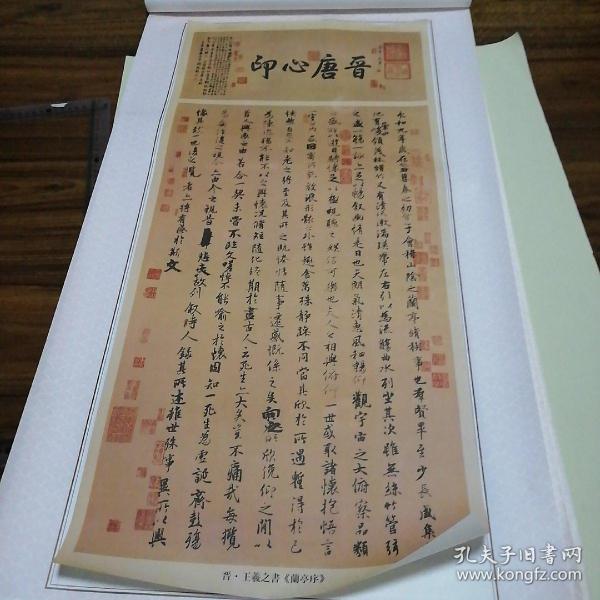 晉唐心印
永和九年歲在癸丑暮春之初會于會稽山陰之蘭亭脩稧事也群賢畢至少長咸集
此地有崇山峻領茂林脩竹又有清流激湍暎帶左右引以為流觴曲水列坐其次雖無絲竹管弦
之盛一觴一詠亦足以暢敘幽情是日也天朗氣清惠風和暢仰觀宇宙之大俯察品類
之盛所以遊目騁懷足以極視聽之娛信可樂也夫人之相與俯仰一世或取諸懷抱悟言
一室之內或因寄所託放浪形骸之外雖趣舍萬殊靜躁不同當其欣於所遇暫得於己
快然自足不知老之將至及其所之既惓情隨事遷感慨係之矣向之所欣俛仰之間以
為陳迹猶不能不以之興懷況脩短隨化終期於盡古人云死生亦大矣豈不痛哉每攬
昔人興感之由若合一契未嘗不臨文嗟悼不能喻之於懷固知一死生為虛誕齊彭殤
為妄作後之視今亦由今之視昔悲夫故列敘時人錄其所述雖世殊事異所以興
懷其致一也後之覽者亦將有感於斯文
晋·王羲之書《蘭亭序》
孔夫子旧书网
www.kongfz.com